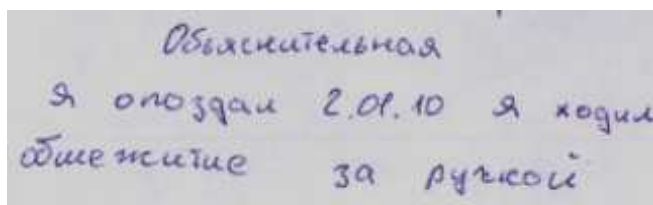 Обьяснительная
Я опоздал 2.01.10 я ходил
обшежитие за ручкой